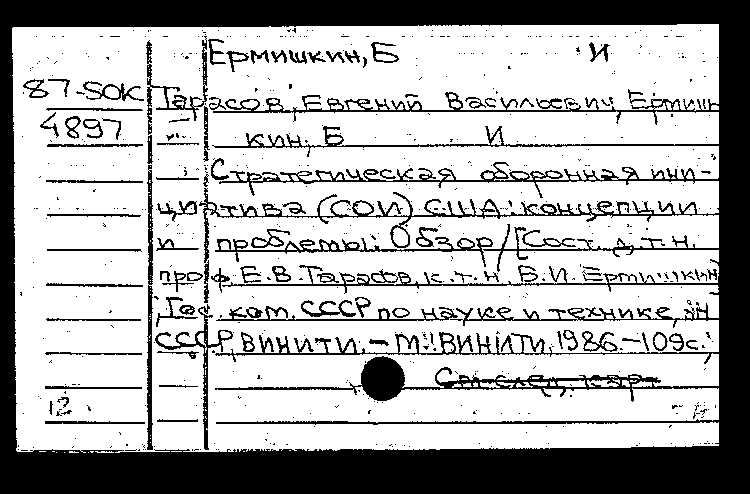 Ермишкин, Б И
87-SOK Тарасов, Евгений Васильевич, Ермиш
4897 кин, Б И
Стратегическая оборонная ини-
циатива (СОИ) США: концепции
и проблемы: Обзор/[Сост. д.т.н.
проф Е.В. Тарасов, к.т.н. Б.И. Ермишкин]
, Гос. ком. СССР по науке и технике, АН
СССР, ВИНИТИ. – М.: ВИНИТИ, 1986. – 109с.;
См след. карт.
12